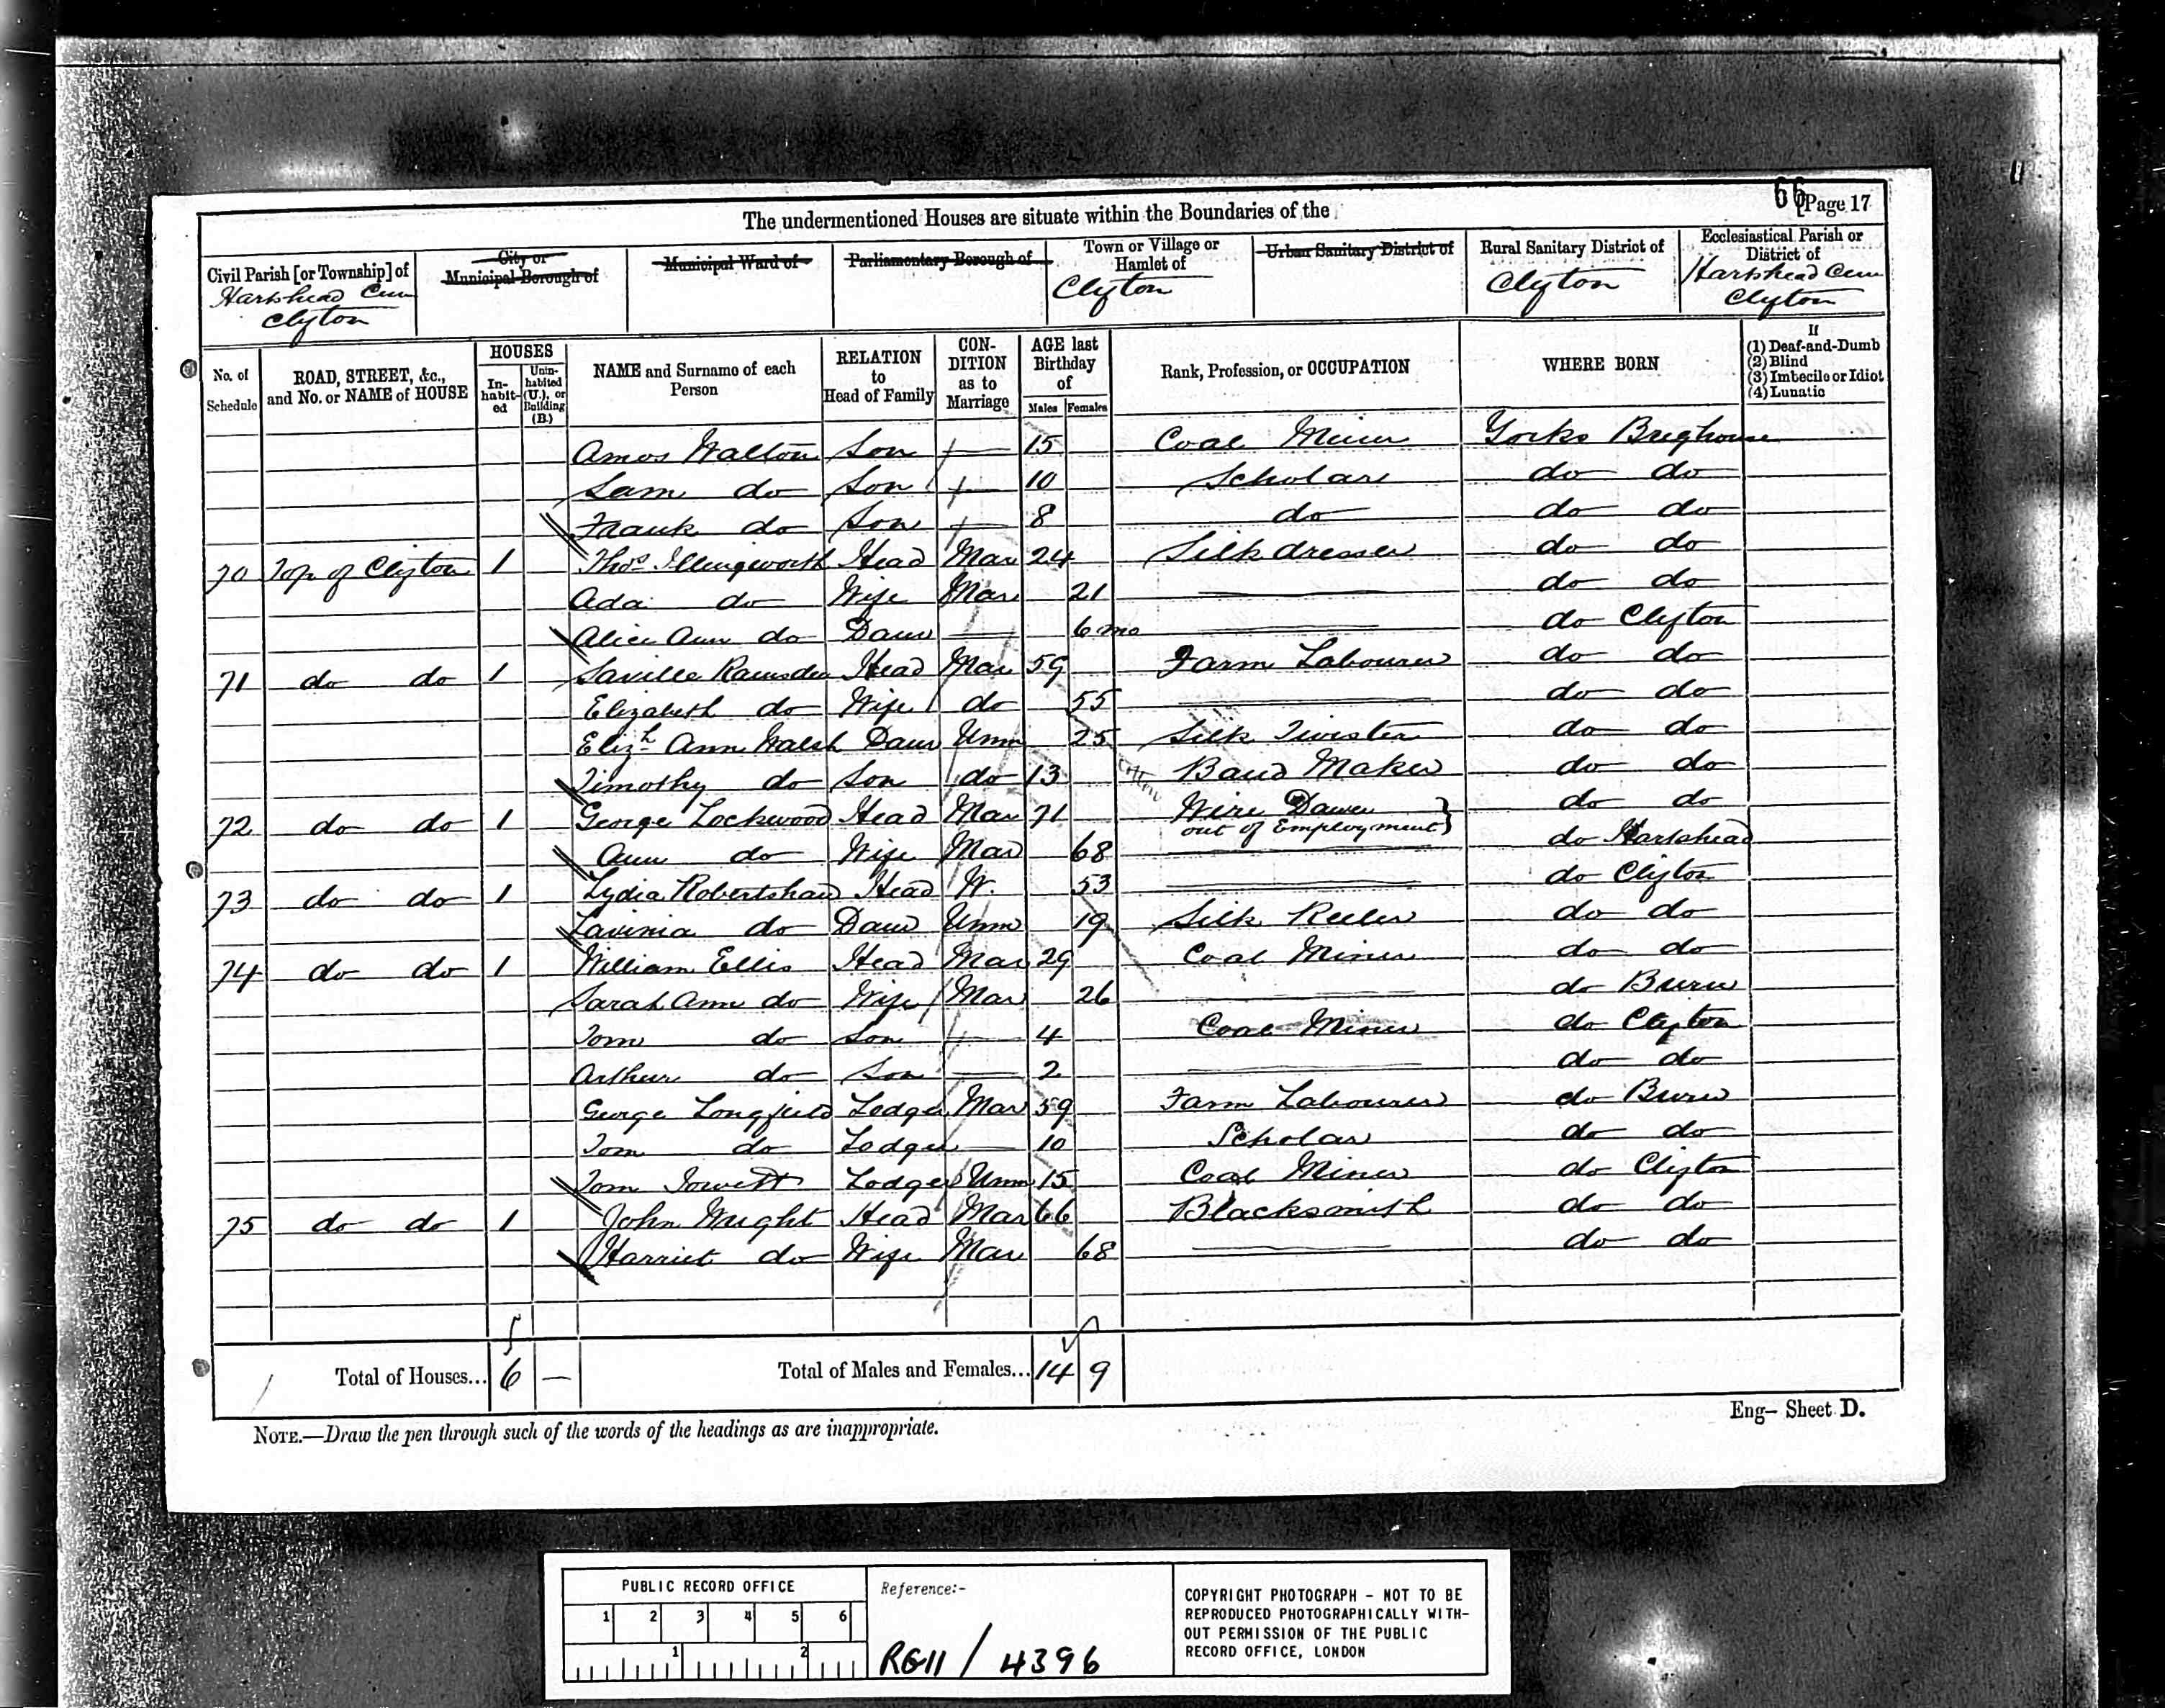 66
[Page 17
The undermentioned Houses are situate within the Boundaries of the
Civil Parish [or Township] of
Hartshead Cum
Clifton
City or
Municipal Borough of
Municipal Ward of
Parliamentary Borough of
Town or Village or
Hamlet of
Clifton
Urban Sanitary District of
Rural Sanitary District of
Clifton
Ecclesiastical Parish or
District of
Hartshead Cum
Clifton
No. of Schedule
ROAD, STREET, &c., and No. or NAME of HOUSE
HOUSES
In-habit-ed
Unin-habited (U.), or Building (B.)
NAME and Surname of each Person
RELATION to Head of Family
CON-DITION as to Marriage
AGE last Birthday of
Males Females
Rank, Profession, or OCCUPATION
WHERE BORN
If
(1) Deaf-and-Dumb
(2) Blind
(3) Imbecile or Idiot
(4) Lunatic
Amos Walton Son 15 Coal Miner Yorks Brighouse
Sam do Son 10 Scholar do do
Frank do Son 8 do do do
70 Top of Clifton 1 Thos Illingworth Head Mar 24 Silk dresser do do
Ada do Wife Mar 21 do do
Alice Ann do Daur 6 mo do Clifton
71 do do 1 Saville Ramsden Head Mar 59 Farm Labourer do do
Elizabeth do Wife do 55 do do
Elizh Ann Walsh Daur Unm 25 Silk Twister do do
Timothy do Son do 13 Band Maker do do
72 do do 1 George Lockwood Head Mar 71 Wire Dawer do do
out of Employment}
Ann do Wife Mar 68 do Hartshead
73 do do 1 Lydia Robertshaw Head W. 53 do Clifton
Lavinia do Daur Unm 19 Silk Reeler do do
74 do do 1 William Ellis Head Mar 29 Coal Miner do do
Sarah Ann do Wife Mar 26 do
Tom do Son 4 Coal Miner do Clifton
Arthur do Son 2 do do
George Longfield Lodger Mar 59 Farm Labourer do
Tom do Lodger 10 Scholar do do
Tom Jowett Lodger Unm 15 Coal Miner do Clifton
75 do do 1 John Wright Head Mar 66 Blacksmith do do
Harriet do Wife Mar 68 do do
5
Total of Houses... 6 — Total of Males and Females... 14 9
NOTE.—Draw the pen through such of the words of the headings as are inappropriate.
Eng— Sheet D.
PUBLIC RECORD OFFICE
1 2 3 4 5 6
1 2
Reference:-
RG11 / 4396
COPYRIGHT PHOTOGRAPH - NOT TO BE
REPRODUCED PHOTOGRAPHICALLY WITH-
OUT PERMISSION OF THE PUBLIC
RECORD OFFICE, LONDON